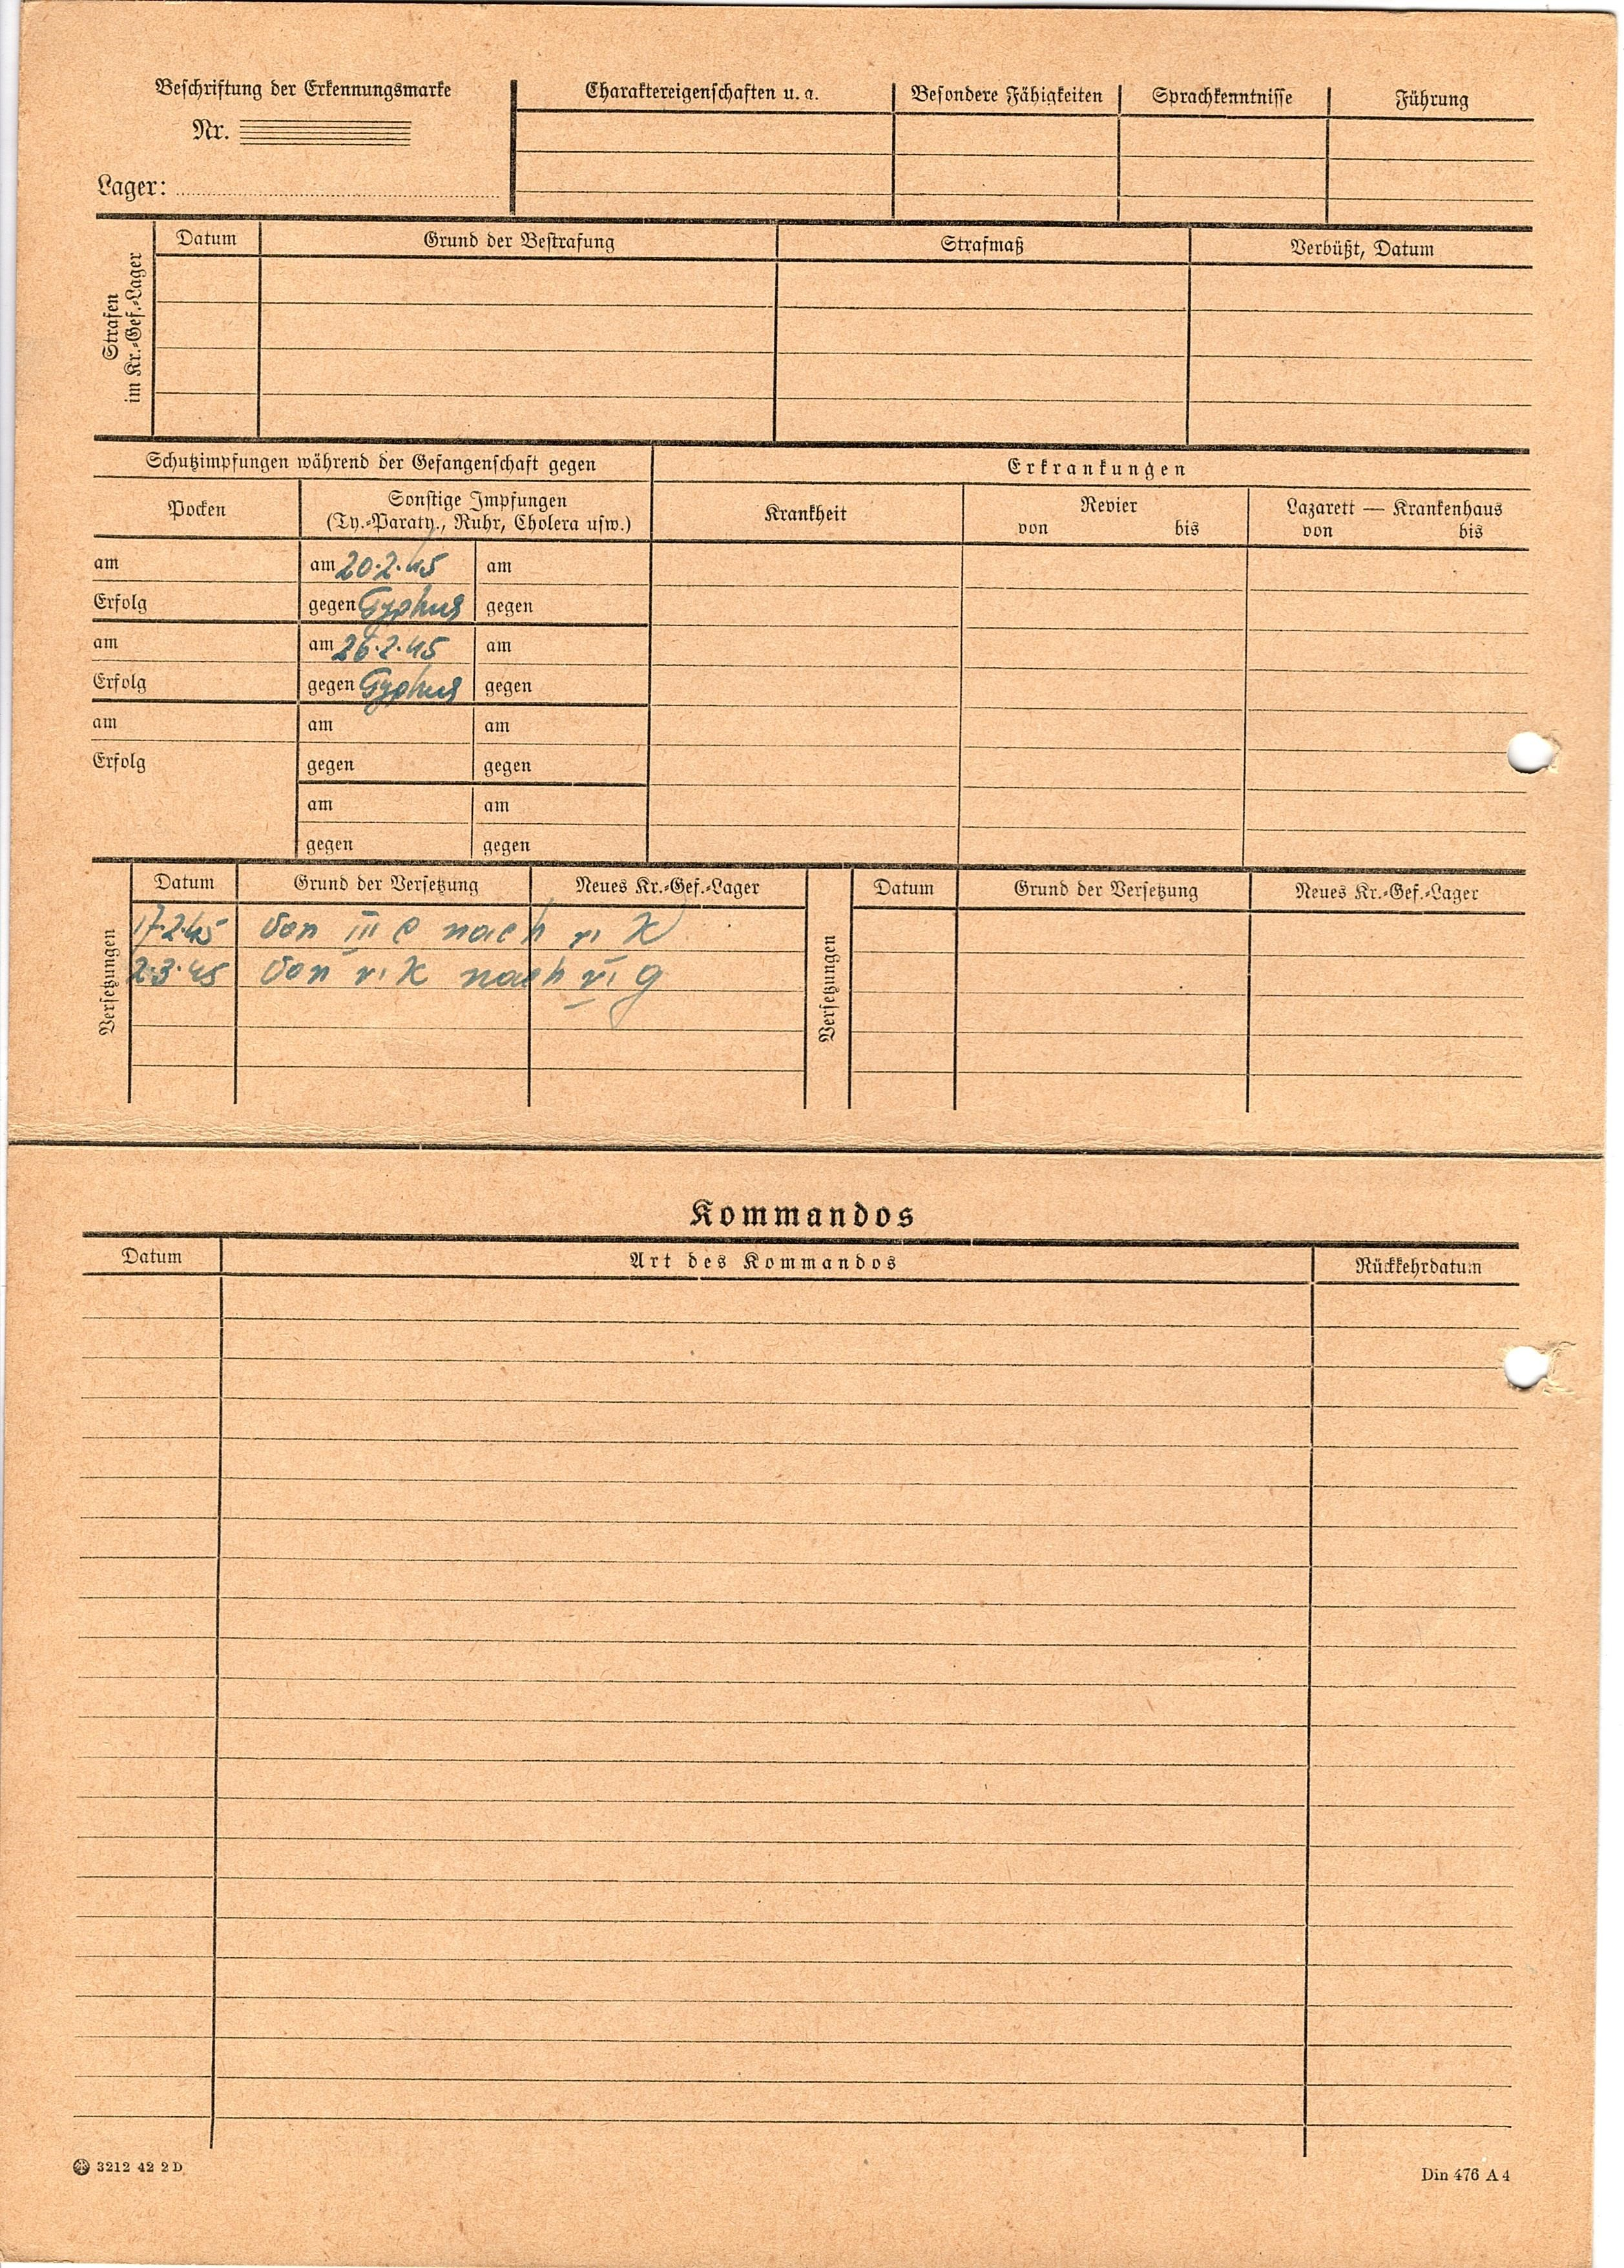 Beschriftung der Erkennungsmarke
Nr.
Lager:
Charaktereigenschaften u. a. Besondere Fähigkeiten Sprachkenntnisse Führung
Strafen
im Kr.-Gef.-Lager
Datum Grund der Bestrafung Strafmaß Verbüßt, Datum
Schutzimpfungen während der Gefangenschaft gegen
Pocken
Sonstige Impfungen
(Ty.-Paraty., Ruhr, Cholera usw.)
Erkrankungen
Krankheit
Revier
von bis
Lazarett — Krankenhaus
von bis
am am 20.2.45 am
Erfolg gegen Typhus gegen
am am 26.2.45 am
Erfolg gegen Typhus gegen
am am am
Erfolg gegen gegen
am am
gegen gegen
Versetzungen
Datum Grund der Versetzung Neues Kr.-Gef.-Lager
17.2.45 Von III C nach VI K
2.3.45 Von VI K nach VI G
Versetzungen
Datum Grund der Versetzung Neues Kr.-Gef.-Lager
Kommandos
Datum Art des Kommandos Rückkehrdatum
3212 42 2 D
Din 476 A 4